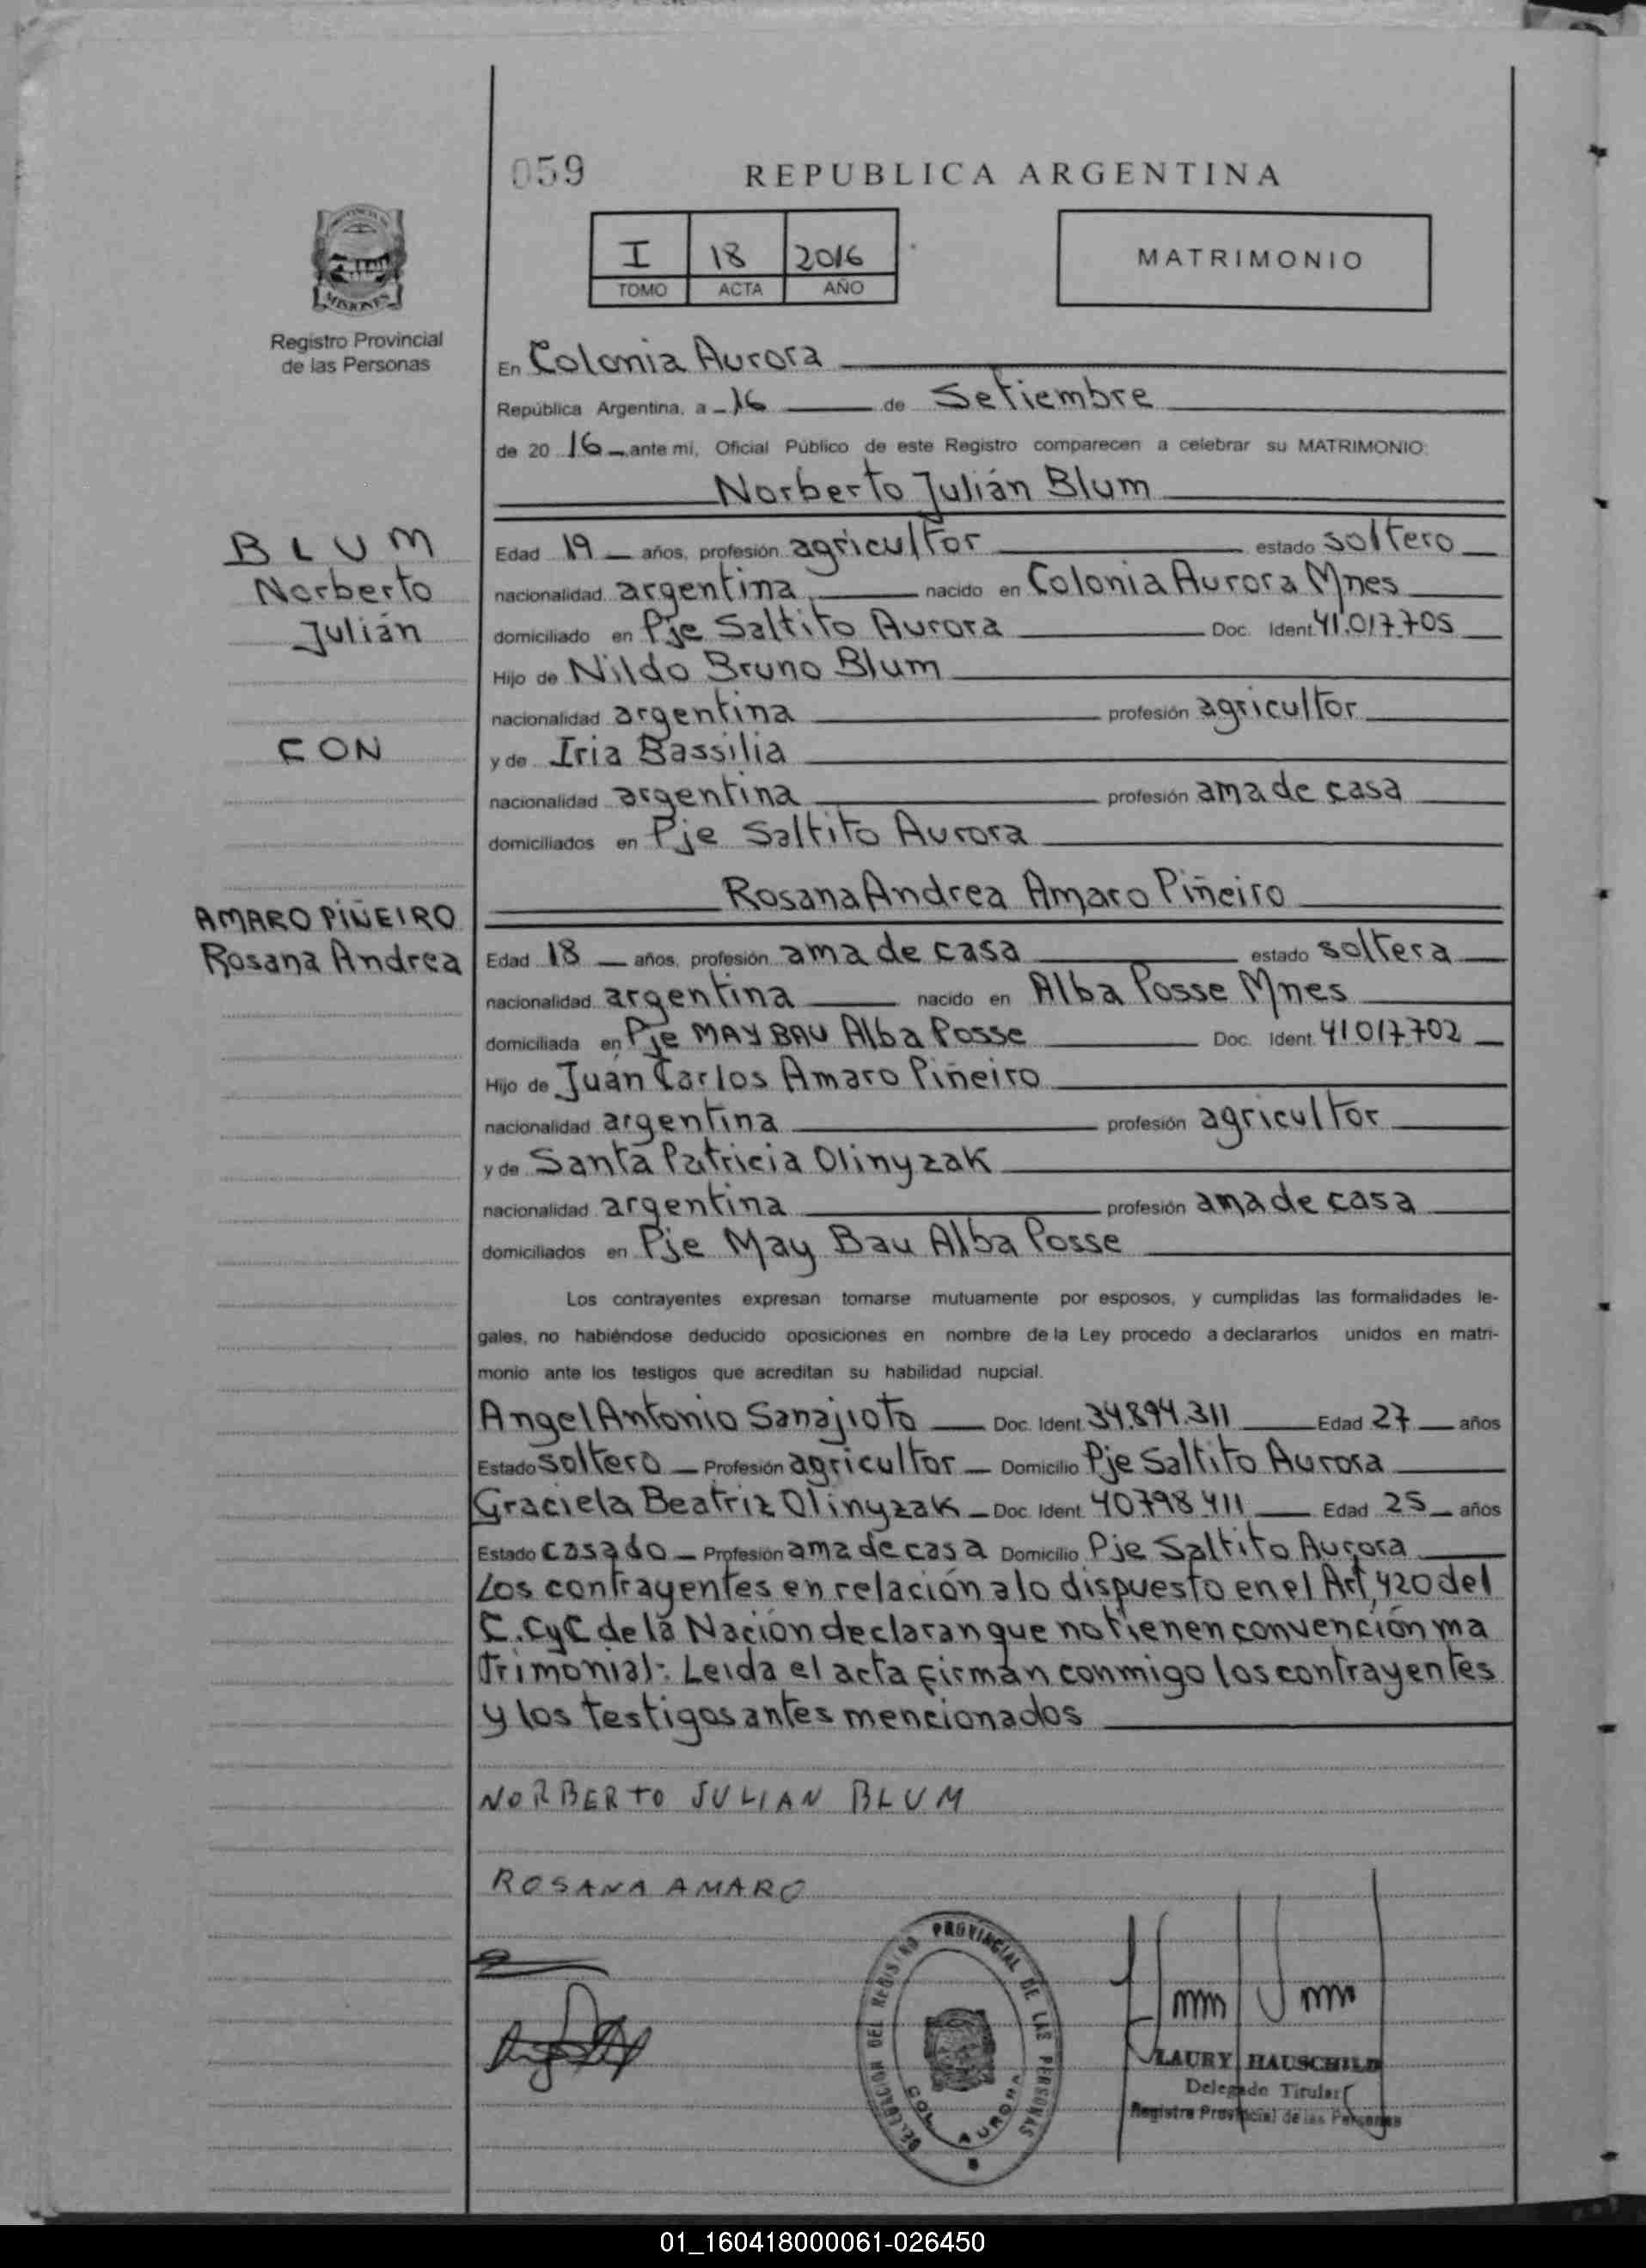 059
REPUBLICA ARGENTINA
I 18 2016
TOMO ACTA AÑO
MATRIMONIO
MISIONES
Registro Provincial
de las Personas
En Colonia Aurora
República Argentina, a 16 de Setiembre
de 20 16 ante mí, Oficial Público de este Registro comparecen a celebrar su MATRIMONIO:
Norberto Julián Blum
BLUM
Norberto
Julián
Edad 19 años, profesión agricultor estado soltero
nacionalidad argentina nacido en Colonia Aurora Mnes
domiciliado en Pje Saltito Aurora Doc. Ident. 41.017.705
Hijo de Nildo Bruno Blum
nacionalidad argentina profesión agricultor
CON
y de Iria Bassilia
nacionalidad argentina profesión ama de casa
domiciliados en Pje Saltito Aurora
Rosana Andrea Amaro Piñeiro
AMARO PIÑEIRO
Rosana Andrea
Edad 18 años, profesión ama de casa estado soltera
nacionalidad argentina nacido en Alba Posse Mnes
domiciliada en Pje MAY BAU Alba Posse Doc. Ident. 41.017.702
Hijo de Juan Carlos Amaro Piñeiro
nacionalidad argentina profesión agricultor
y de Santa Patricia Olinyzak
nacionalidad argentina profesión ama de casa
domiciliados en Pje May Bau Alba Posse
Los contrayentes expresan tomarse mutuamente por esposos, y cumplidas las formalidades le-
gales, no habiéndose deducido oposiciones en nombre de la Ley procedo a declararlos unidos en matri-
monio ante los testigos que acreditan su habilidad nupcial.
Angel Antonio Sanajioto Doc. Ident. 34.894.311 Edad 27 años
Estado soltero Profesión agricultor Domicilio Pje Saltito Aurora
Graciela Beatriz Olinyzak Doc. Ident. 40.798.411 Edad 25 años
Estado casado Profesión ama de casa Domicilio Pje Saltito Aurora
Los contrayentes en relación a lo dispuesto en el Art, 420 del
C.CyC de la Nación declaran que no tienen convención ma
trimonial: Leida el acta firman conmigo los contrayentes
y los testigos antes mencionados
NORBERTO JULIAN BLUM
ROSANA AMARO
DELEGACION DEL REGISTRO PROVINCIAL DE LAS PERSONAS
COL. AURORA
LAURY HAUSCHILD
Delegado Titular
Registro Provincial de las Personas
01_160418000061-026450